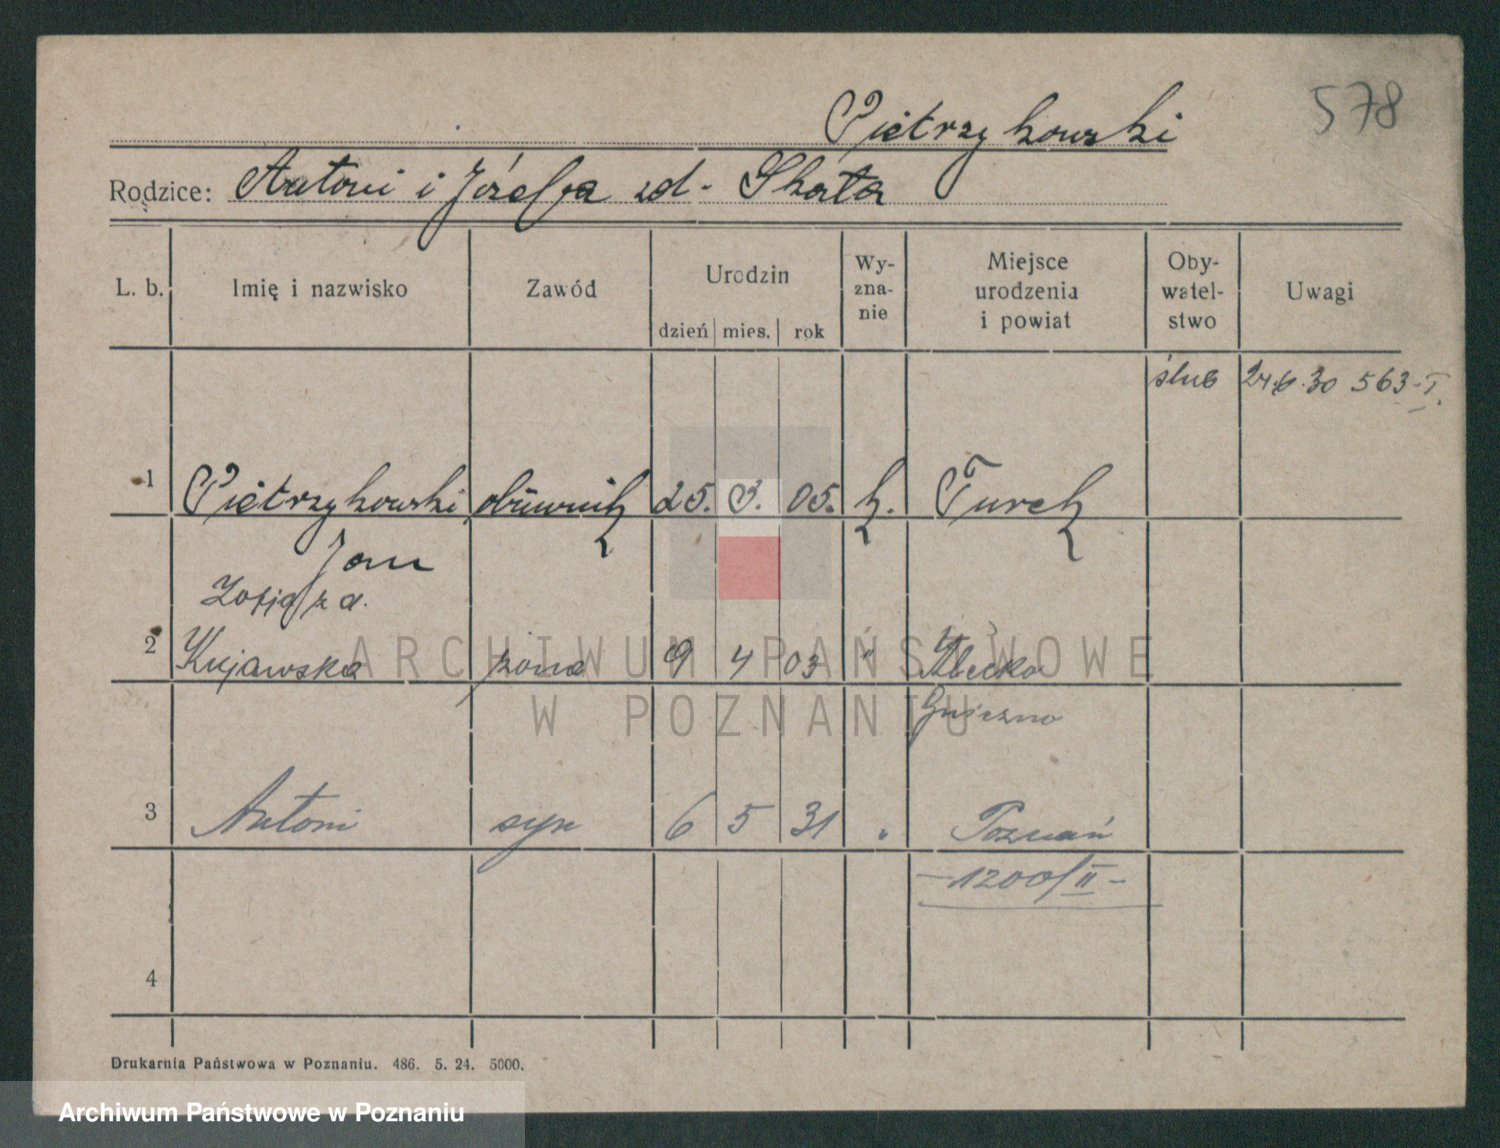 578
Pietrzykowski
Rodzice: Antoni i Józefa zd. Skarta
L. b. Imię i nazwisko Zawód Urodzin dzień mies. rok Wy-zna-nie Miejsce urodzenia i powiat Oby-watel-stwo Uwagi
ślub 24.6.30 563-I.
1 Pietrzykowski obuwnik 25. 3. 05. k. Turek
Jan
Zofja z d.
2 Kujawska żona 9 4 03 " Kłecko
Gniezno
3 Antoni syn 6 5 31 " Poznań
-1200/II-
4
Drukarnia Państwowa w Poznaniu. 486. 5. 24. 5000.
ARCHIWUM PAŃSTWOWE
W POZNANIU
Archiwum Państwowe w Poznaniu